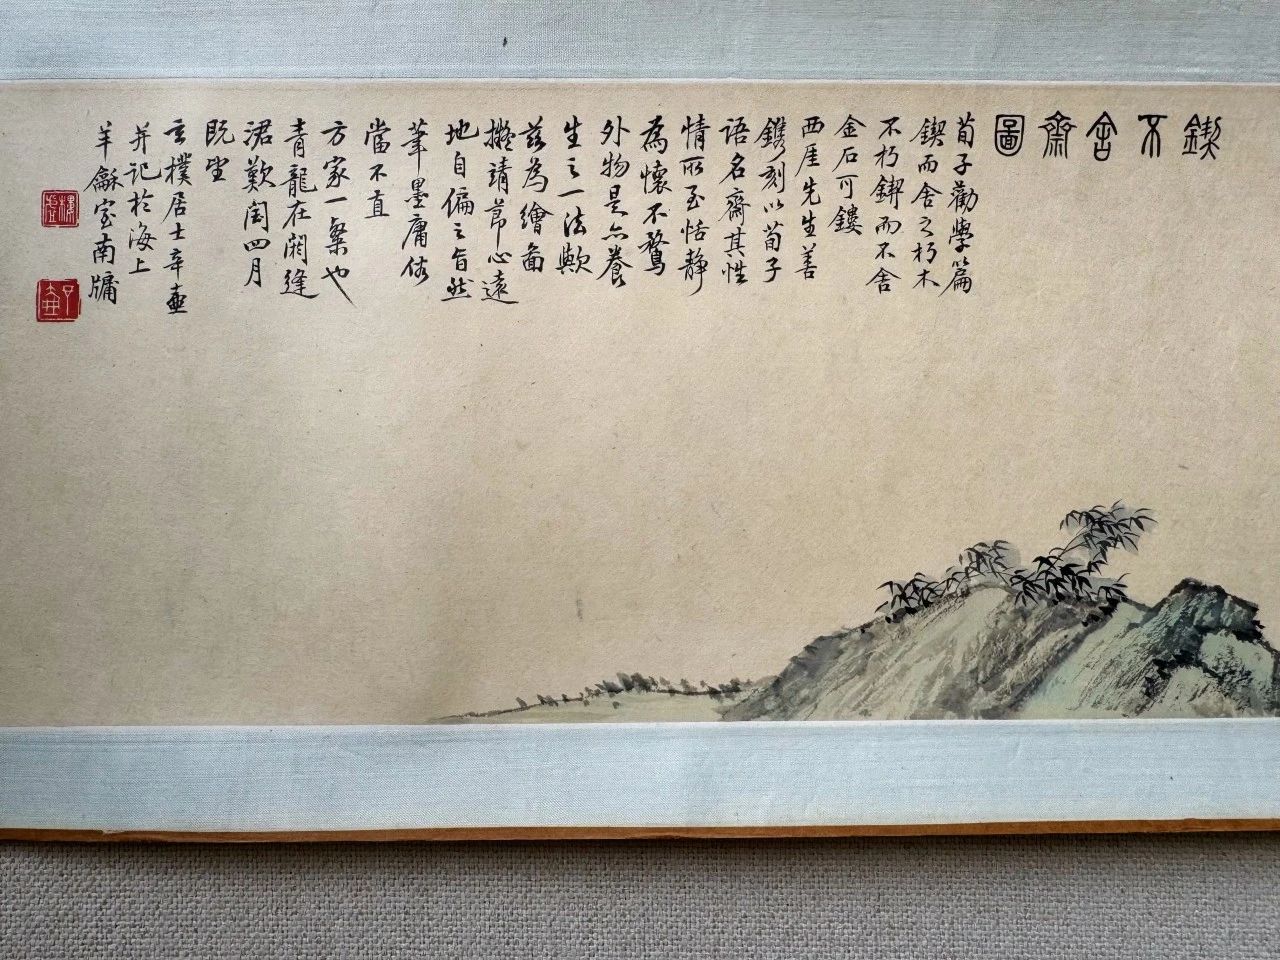 鍥不舍齋圖
荀子勸學篇
鍥而舍之朽木
不朽鍥而不舍
金石可鏤
西厓先生善
鐫刻以荀子
語名齋其性
情所至恬静
為懷不鶩
外物是亦養
生之一法歟
茲為繪圖
擬靖節心遠
地自偏之旨然
筆墨庸俗
當不直
方家一粲也
青龍在閼逢
涒歎閏四月
既望
玄樸居士辛壺
并記於海上
羊龢室南牖